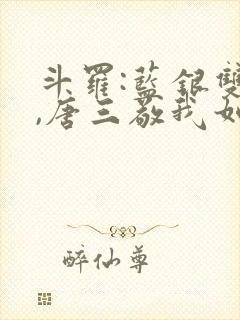 斗羅:藍銀雙
,唐三敬我如
醉仙尊